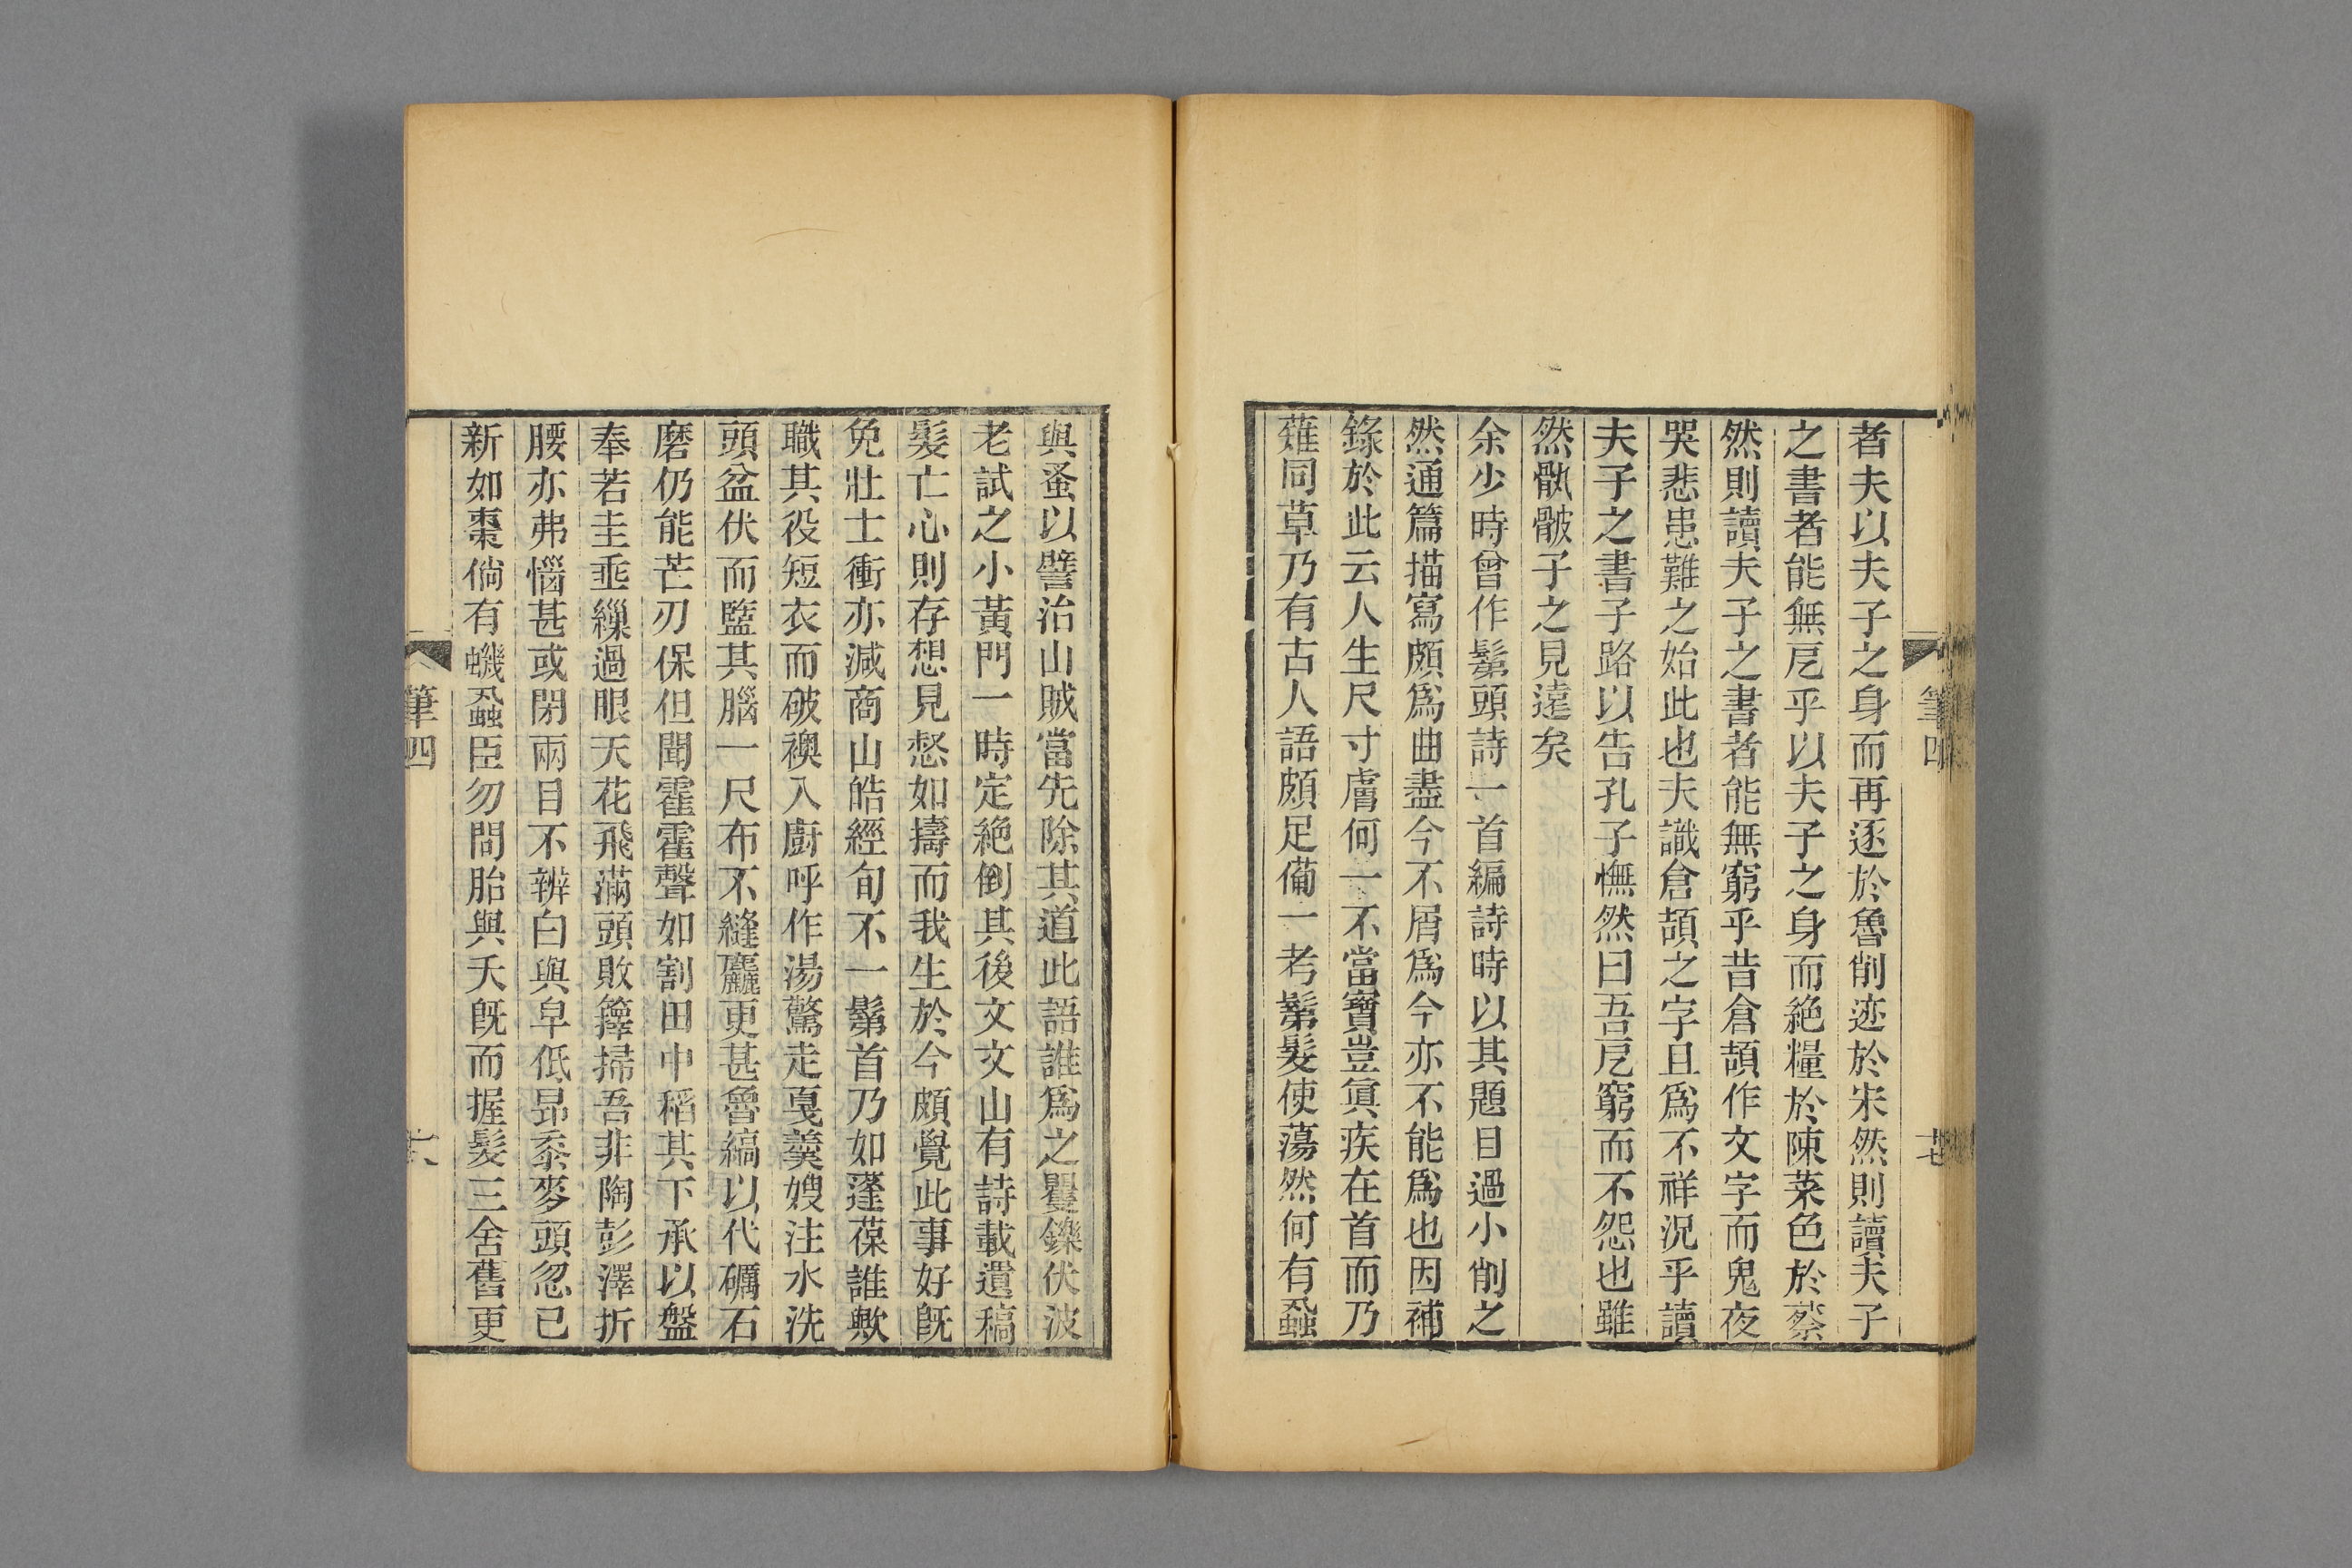 者夫以夫子之身而再逐於魯削迹於宋然則讀夫子
之書者能無戹乎以夫子之身而絶糧於陳菜色於蔡
然則讀夫子之書者能無窮乎昔倉頡作文字而鬼夜
哭悲患難之始此也夫識倉頡之字且爲不祥況乎讀
夫子之書子路以告孔子憮然曰吾戹窮而不怨也雖
然骩骳子之見遠矣
余少時曾作鬀頭詩一首編詩時以其題目過小削之
然通篇描寫頗爲曲盡今不屑爲今亦不能爲也因補
錄於此云人生尺寸膚何一不當寶豈眞疾在首而乃
薙同草乃有古人語頗足備一考鬀髮使蕩然何有蝨
筆四
與蚤以譬治山賊當先除其道此語誰爲之矍鑠伏波
老試之小黃門一時定絶倒其後文文山有詩載遺稿
髮亡心則存想見惄如擣而我生於今頗覺此事好旣
免壯士衝亦減商山皓經旬不一鬀首乃如蓬葆誰歟
職其役短衣而破襖入廚呼作湯驚走戛羹嫂注水洗
頭盆伏而盬其腦一尺布不縫麤更甚魯縞以代礪石
磨仍能芒刃保但聞霍霍聲如割田中稻其下承以盤
奉若圭垂繅過眼天花飛滿頭敗籜掃吾非陶彭澤折
腰亦弗惱甚或閉兩目不辨白與皁低昻黍麥頭忽已
新如棗倘有蟣蝨臣勿問胎與夭旣而握髮三舍舊更
筆四